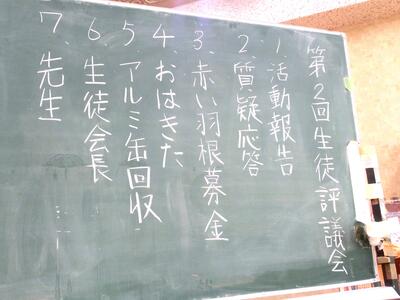 第2回生徒評議会
1、活動報告
2、質疑応答
3、赤い羽根募金
4、おはきた
5、アルミ缶回収
6、生徒会長
7、先生